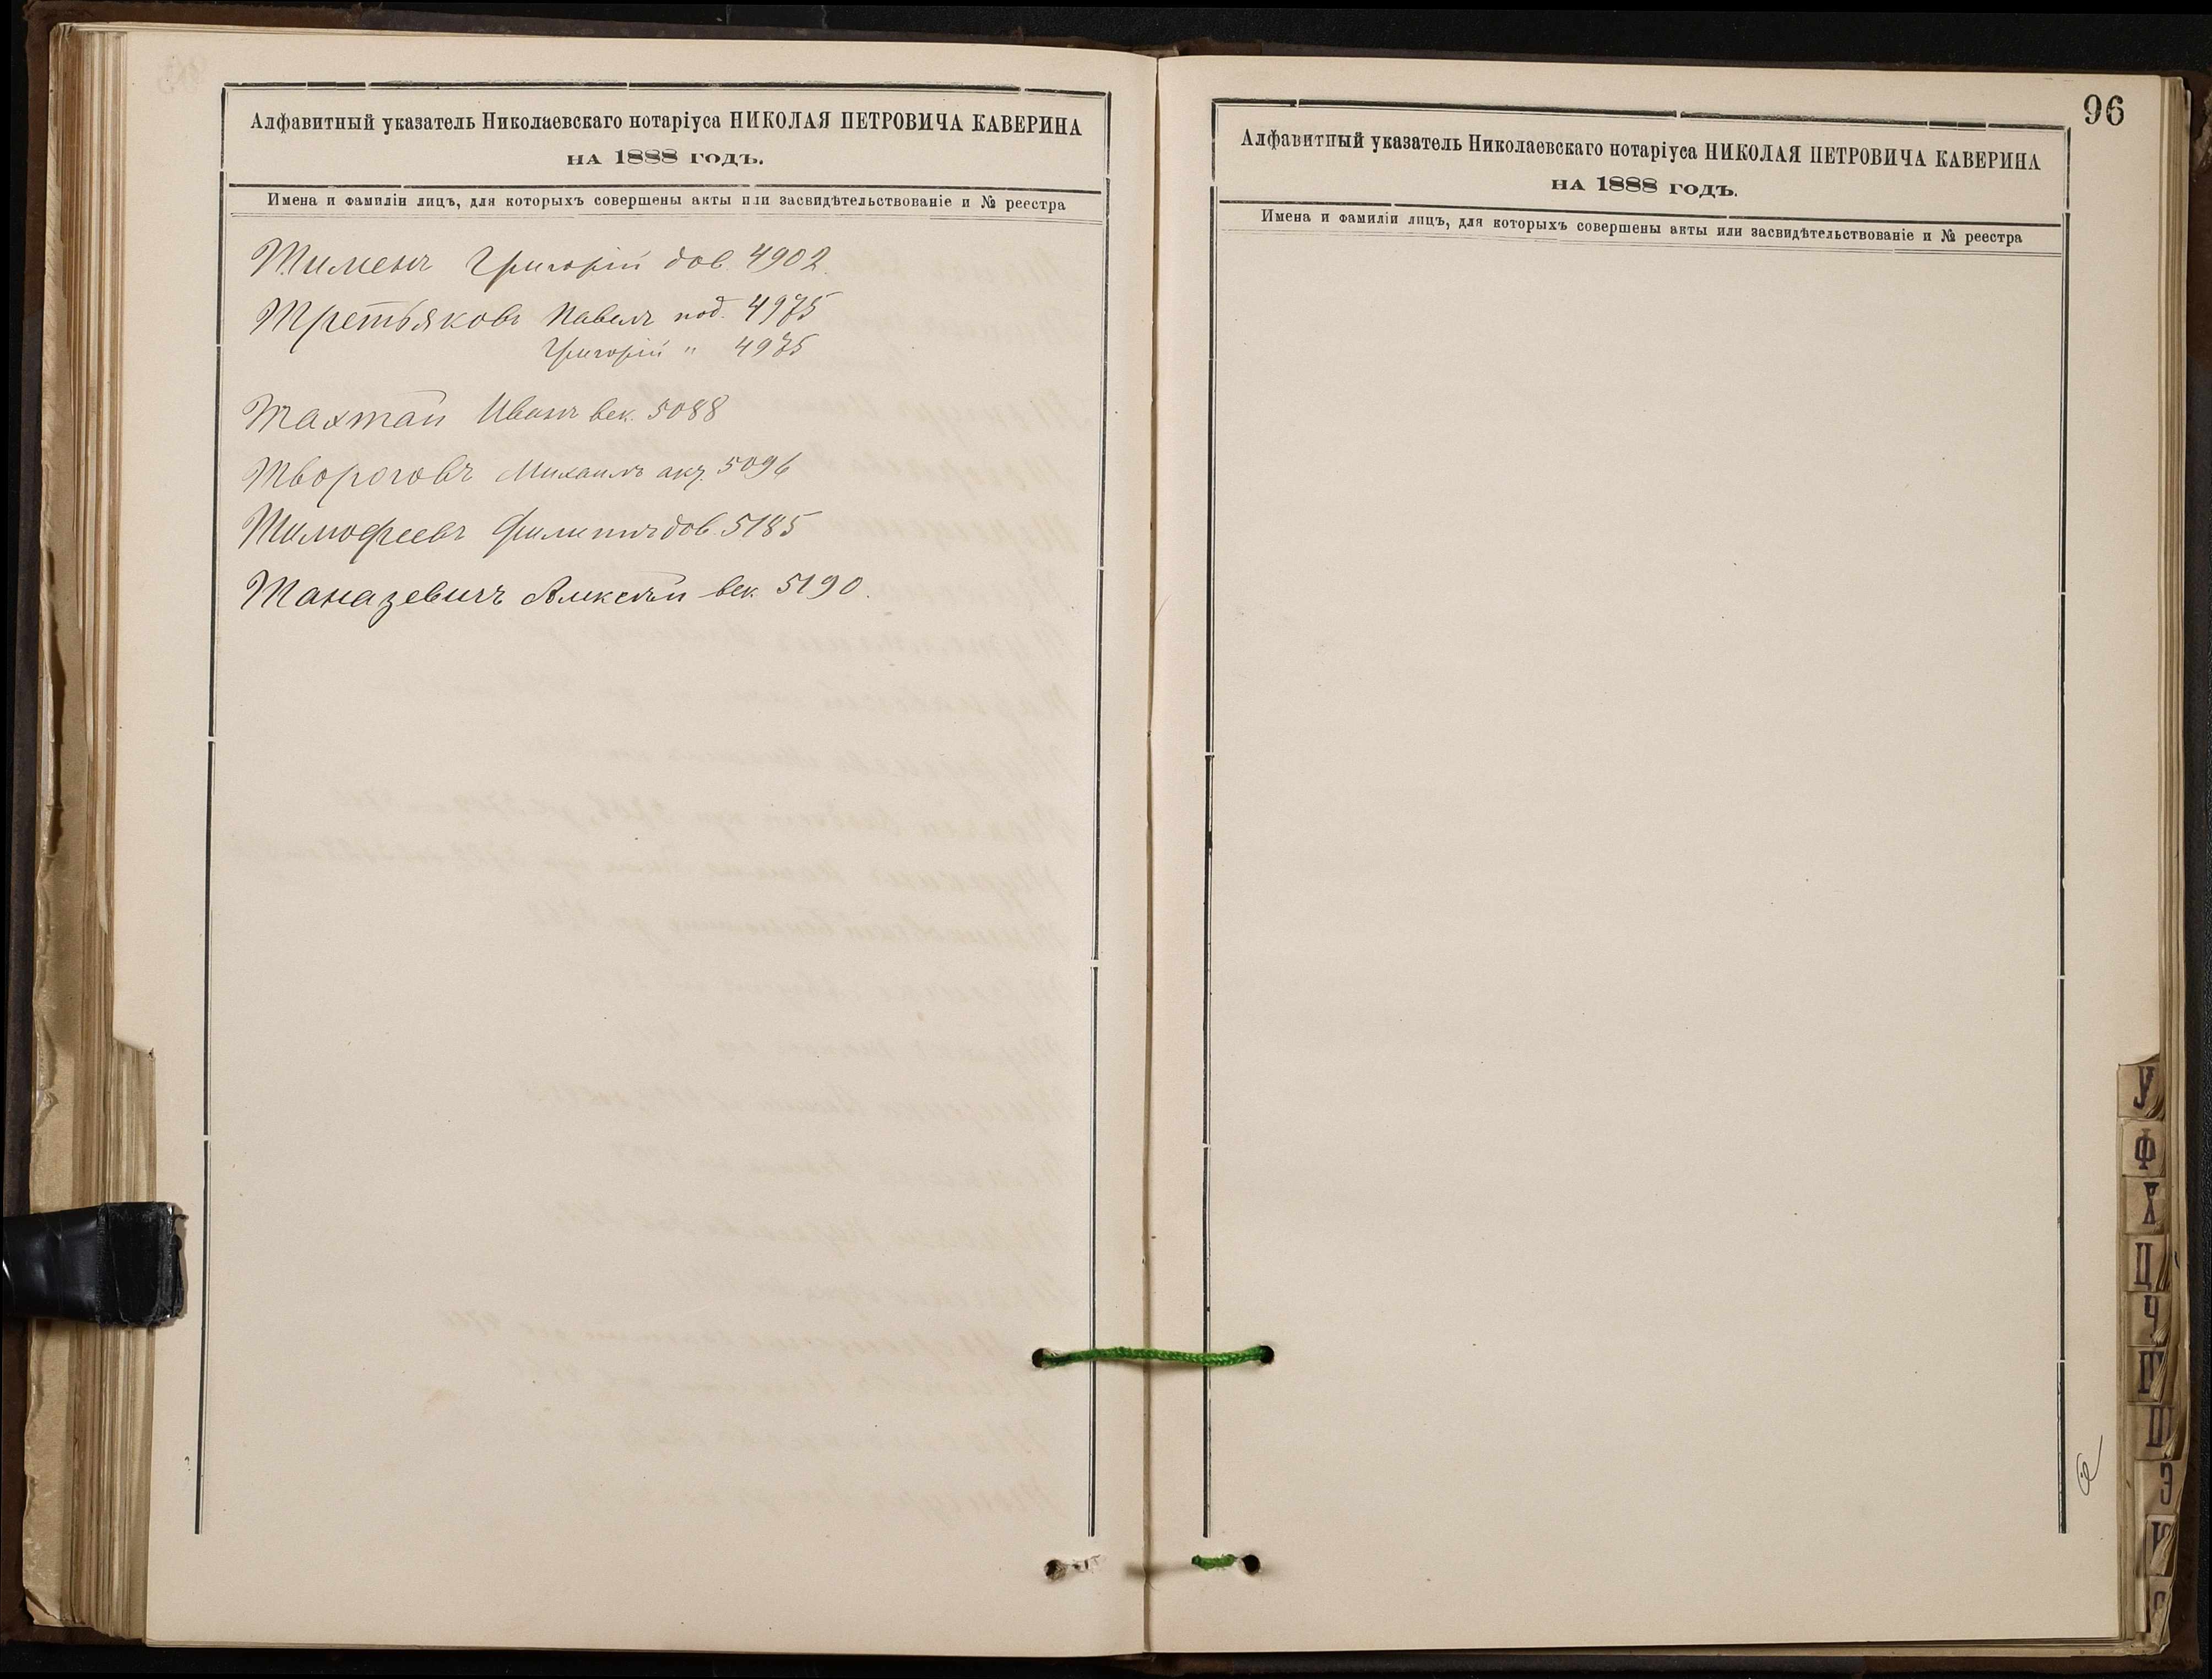 Алфавитный указатель Николаевскаго нотаріуса НИКОЛАЯ ПЕТРОВИЧА КАВЕРИНА
НА 1888 ГОДЪ.
Имена и фамиліи лицъ, для которыхъ совершены акты или засвидѣтельствованіе и № реестра
Тименъ Григорій дов. 4902.
Третьяковъ Павелъ под. 4975
Григорій " 4975
Тахтай Иванъ век. 5088
Твороговъ Михаилъ акц. 5096
Тимофеевъ Филиппъ дов. 5185
Таназевичъ Алексѣй век. 5190.
96
Алфавитный указатель Николаевскаго нотаріуса НИКОЛАЯ ПЕТРОВИЧА КАВЕРИНА
НА 1888 ГОДЪ.
Имена и фамиліи лицъ, для которыхъ совершены акты или засвидѣтельствованіе и № реестра
У
Ф
Х
Ц
Ч
Ш
Э